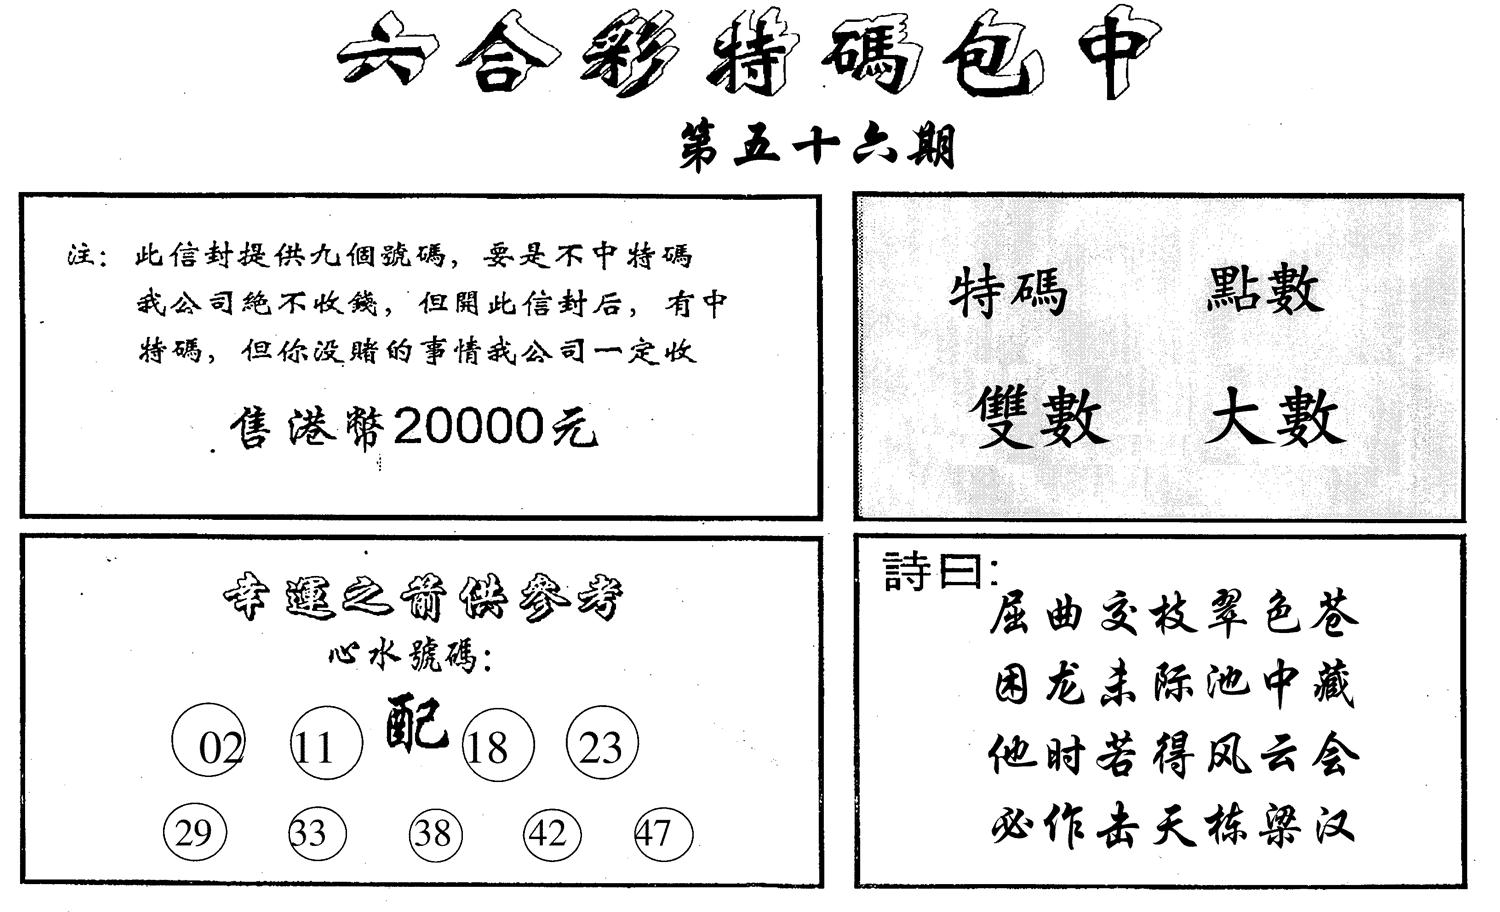 六合彩特碼包中
第五十六期
注：此信封提供九個號碼，要是不中特碼
我公司絕不收錢，但開此信封后，有中
特碼，但你没賭的事情我公司一定收
售港幣20000元
特碼 點數
雙數 大數
幸運之箭供參考
心水號碼：
02 11 配 18 23
29 33 38 42 47
詩曰：
屈曲交枝翠色苍
困龙未际池中藏
他时若得风云会
必作击天栋梁汉